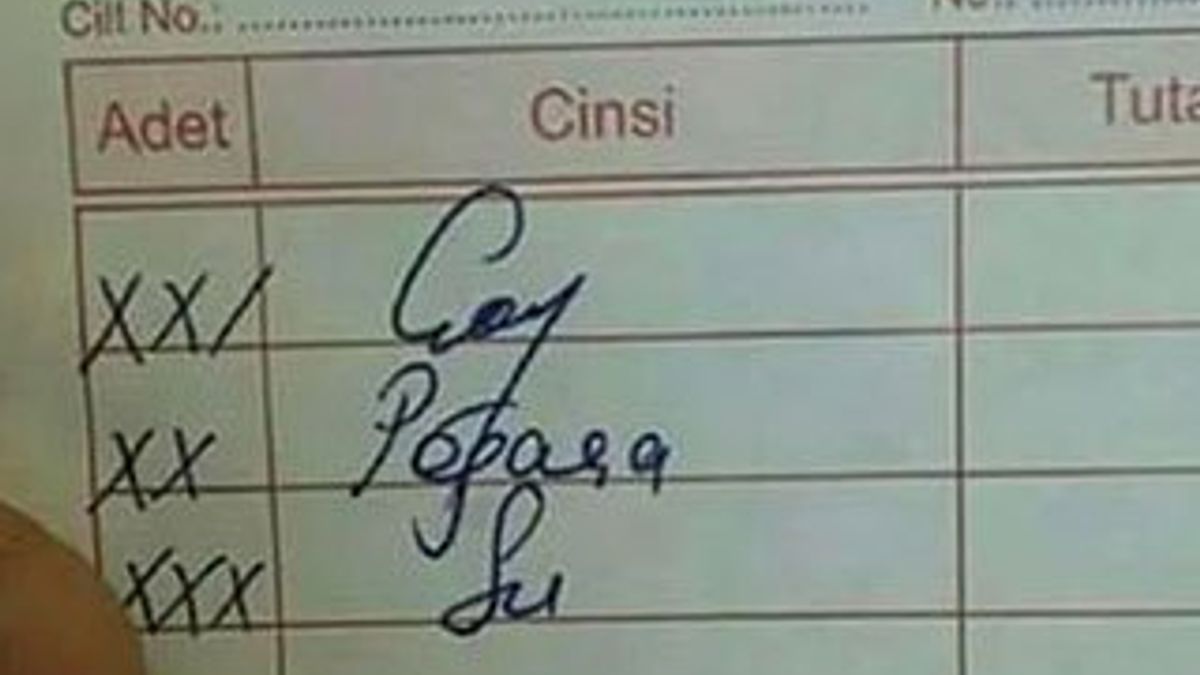 Cilt No.: No.:
Adet Cinsi
XX/ Çay
XX Poğaça
XXX Su